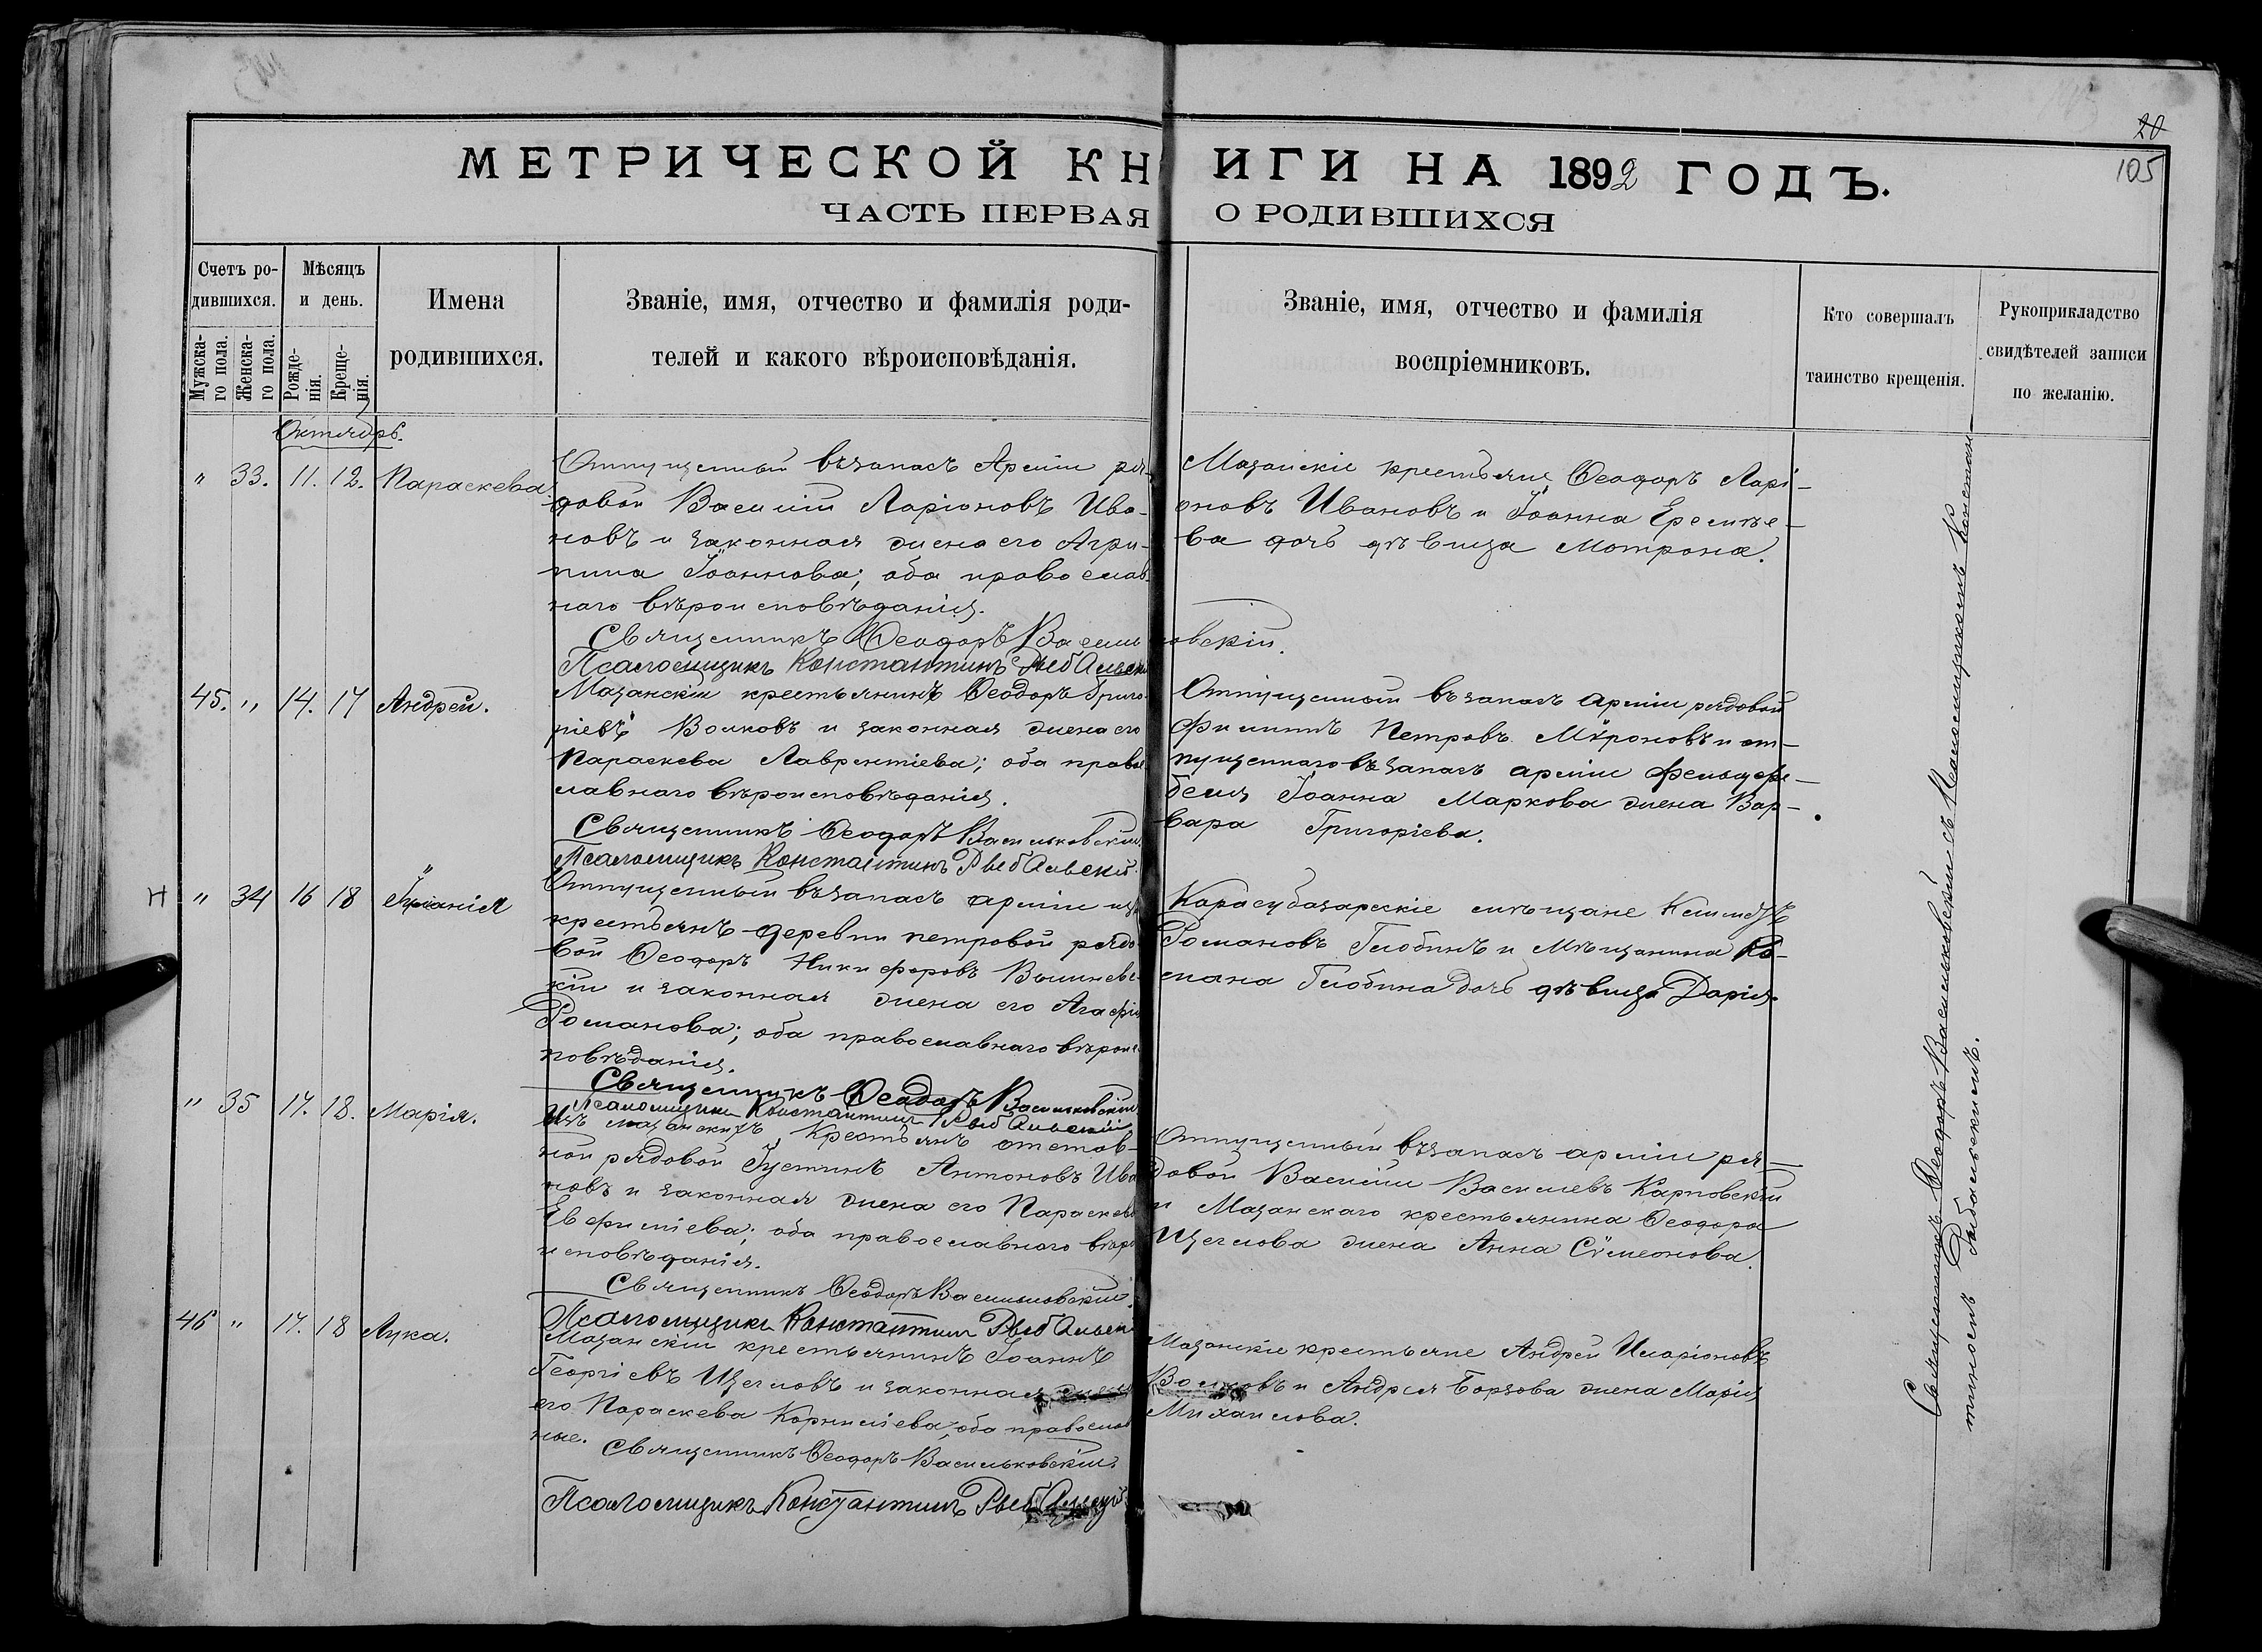 20
105
МЕТРИЧЕСКОЙ КНИГИ НА 1892 ГОДЪ.
ЧАСТЬ ПЕРВАЯ О РОДИВШИХСЯ
Счетъ ро-
дившихся.
Мужска-
го пола.
Женска-
го пола.
Мѣсяцъ
и день.
Рожде-
нія.
Креще-
нія.
Имена
родившихся.
Званіе, имя, отчество и фамилія роди-
телей и какого вѣроисповѣданія.
Званіе, имя, отчество и фамилія
воспріемниковъ.
Кто совершалъ
таинство крещенія.
Рукоприкладство
свидѣтелей записи
по желанію.
Октябрь.
" 33. 11. 12. Параскева.
Отпущенный въ запасъ Арміи ря-
довой Василій Ларіоновъ Ива-
новъ и законная жена его Агри-
пина Іоаннова; оба православ-
наго вѣроисповѣданія.
Священникъ Ѳеодоръ Васильковскій.
Псаломщикъ Константинъ Рыбальскій
Мазанскіе крестьяне Ѳеодоръ Ларі-
оновъ Ивановъ и Іоанна Еремѣе-
ва дочь дѣвица Матрона.
45. " 14. 17 Андрей.
Мазанскій крестьянинъ Ѳеодоръ Григо-
ріевъ Волковъ и законная жена его
Параскева Лаврентіева; оба право-
славнаго вѣроисповѣданія.
Священникъ Ѳеодоръ Васильковскій.
Псаломщикъ Константинъ Рыбальскій.
Отпущенный въ запасъ арміи рядовой
Филиппъ Петровъ Мѵроновъ и от-
пущеннаго въ запасъ арміи фельдфе-
беля Іоанна Маркова жена Вар-
вара Григоріева.
Н " 34 16 18
Отпущенный въ запасъ арміи изъ
крестьянъ деревни Петровой рядо-
вой Ѳеодоръ Никифоровъ Вышнев-
кій и законная жена его Агафія
Романова; оба православнаго вѣроис-
повѣданія.
Священникъ Ѳеодоръ Васильковскій.
Псаломщикъ Константинъ Рыбальскій
Карасубазарскіе мѣщане
Романовъ Глобинъ и мѣщанина Ро-
мана Глобина дочь дѣвица Дарія.
" 35 17. 18. Марія.
Изъ мазанскихъ крестьянъ отстав-
ной рядовой Іустинъ Антоновъ Ива-
новъ и законная жена его Параскева
Евфиміева; оба православнаго вѣро-
исповѣданія.
Священникъ Ѳеодоръ Васильковскій.
Псаломщикъ Константинъ Рыбальскій
Отпущенный въ запасъ арміи ря-
довой Василій Василіевъ Карповскій
и Мазанскаго крестьянина Ѳеодора
Щеглова жена Анна Сѵмеонова.
46 " 17. 18 Лука.
Мазанскій крестьянинъ Іоаннъ
Георгіевъ Щегловъ и законная жена
его Параскева Корниліева; оба православ-
ные.
Священникъ Ѳеодоръ Васильковскій.
Псаломщикъ Константинъ Рыбальскій
Мазанскіе крестьяне Андрей Иларіоновъ
Волковъ и Андрея Борзова жена Марія
Михаилова.
Священникъ Ѳеодоръ Васильковскій съ Псаломщикомъ Констан-
тиномъ Рыбальскимъ.